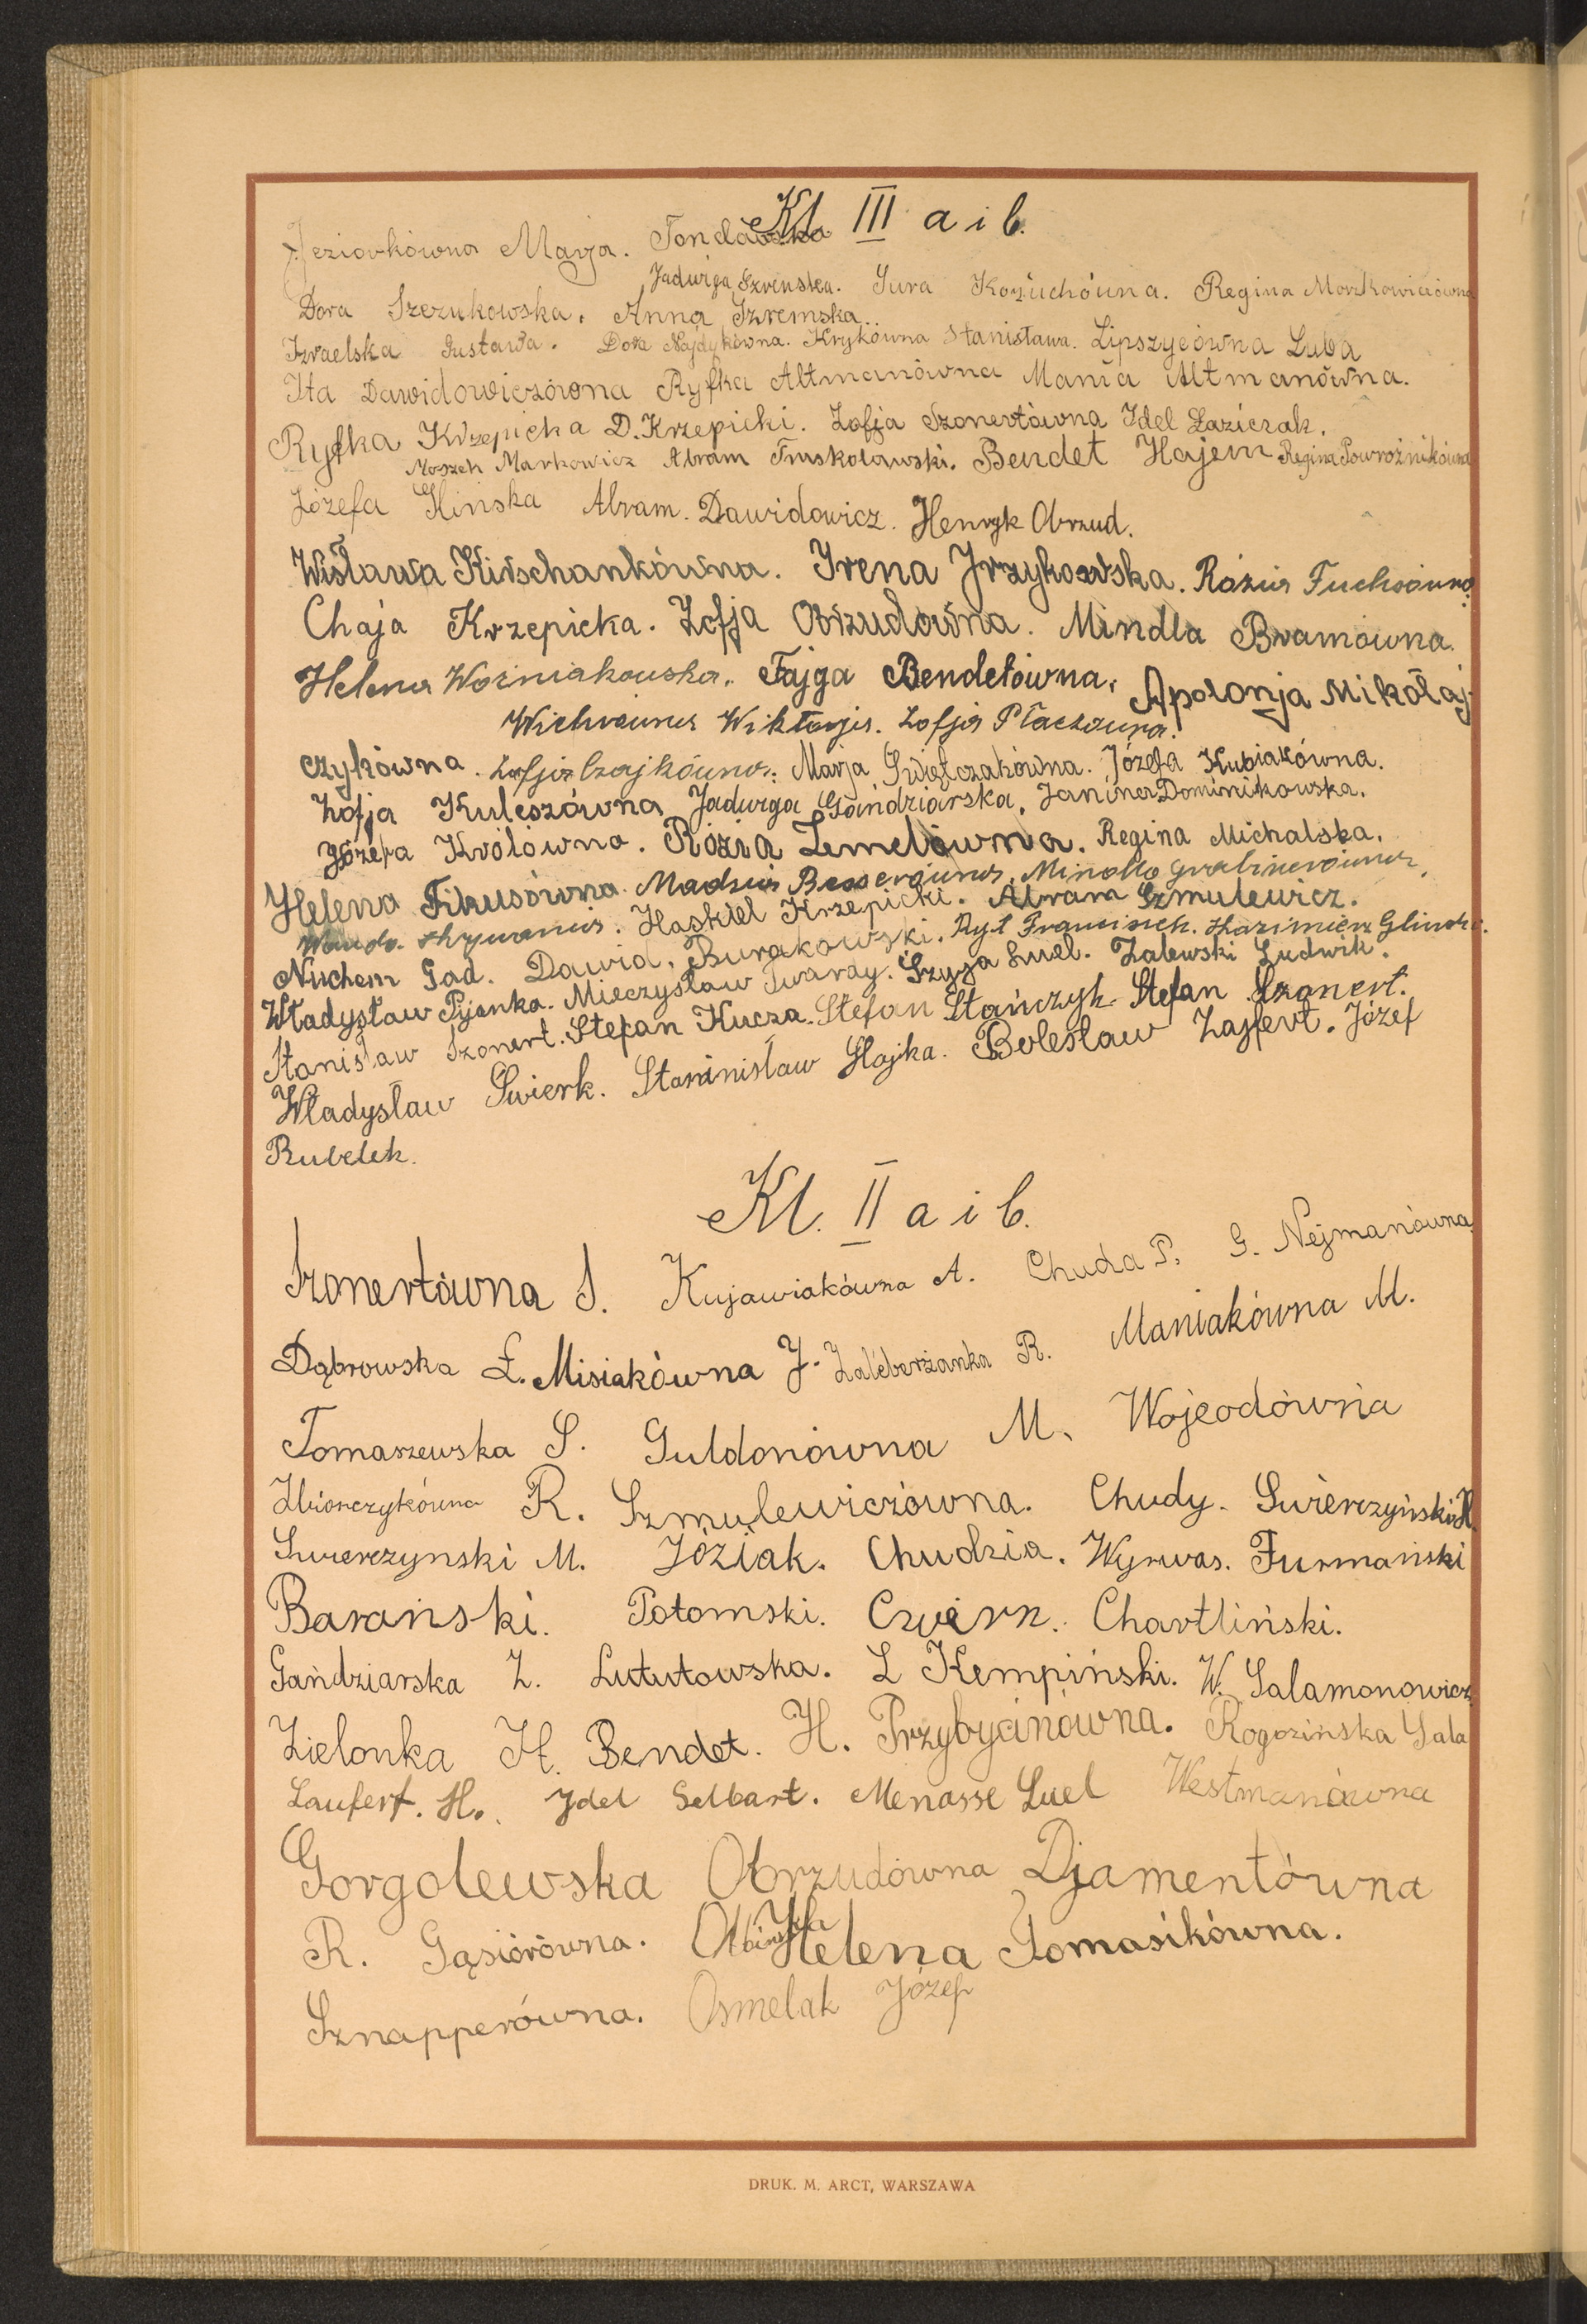 Kl. III a i b.
Jeziorkówna Marja. Tondowska
Jadwiga Szremska. Sura Kożuchówna. Regina Moszkowiczówna
Dora Szczukowska. Anna Szremska.
Izraelska Gustawa. Dora Najdykówna. Krykówna Stanisława. Lipszycówna Luba
Ita Dawidowiczówna Ryfka Altmanówna Mania Altmanówna.
Ryfka Krzepicka D. Krzepicki. Zofja Szonertówna Idel Łaziczak.
Moszek Markowicz Abram Truskolawski. Bendet Hajem Regina Powroźnikówna
Józefa Glińska Abram. Dawidowicz. Henryk Obrzud.
Wisława Kirschankówna. Irena Jrzykowska. Rózia Fuchsówna.
Chaja Krzepicka. Zofja Obrzudówna. Mindla Bramówna.
Helena Woźniakowska. Fajga Bendetówna. Apolonja Mikołaj-
Wichrówna Wiktorja. Zofja Płaczówna.
czykówna. Zofja Czajkówna. Marja Świętczakówna. Józefa Kubiakówna.
Zofja Kuleszówna Jadwiga Gańdziarska. Janina Dominikowska.
Józefa Królówna. Rózia Lemelówna. Regina Michalska.
Helena Fikusówna. Madzia Besserówna. Mindla Grabinerówna.
Wanda. Haskiel Krzepicki. Abram Szmulewicz.
Nuchem Gad. Dawid. Burakowski. Ryl Franciszek. Kazimierz Gliński.
Władysław Pijanka. Mieczysław Twardy. Szyja Luel. Zalewski Ludwik.
Stanisław Szonert. Stefan Kucza. Stefan Stańczyk. Stefan Szonert.
Władysław Świerk. Staninisław Hajka. Bolesław Zajfert. Józef
Rubelek.
Kl. II a i b.
Szonertówna S. Kujawiakówna A. Chuda P. G. Nejmanówna
Dąbrowska Ł. Misiakówna J. Zaleberżanka R. Maniakówna M.
Tomaszewska S. Guldonówna M. Wojeodówna
Zbiorczykówna R. Szmulewiczówna. Chudy. Świerczyński H.
Świerczynski M. Jóźiak. Chudzia. Wyrwas. Furmański
Barański. Potomski. Czwirn. Chartliński.
Gańdziarska Z. Lututowska. L Kempiński. W. Salamonowicz
Zielonka H. Bendet. H. Przybycinówna. Rogozińska Sala
Laufert. H. Jdel Selbart. Menasse Luel Westmanówna
Gorgolewska Obrzudówna Djamentówna
R. Gąsiórówna. Helena Tomasikówna.
Sznapperówna. Osmelak Józef
DRUK. M. ARCT, WARSZAWA